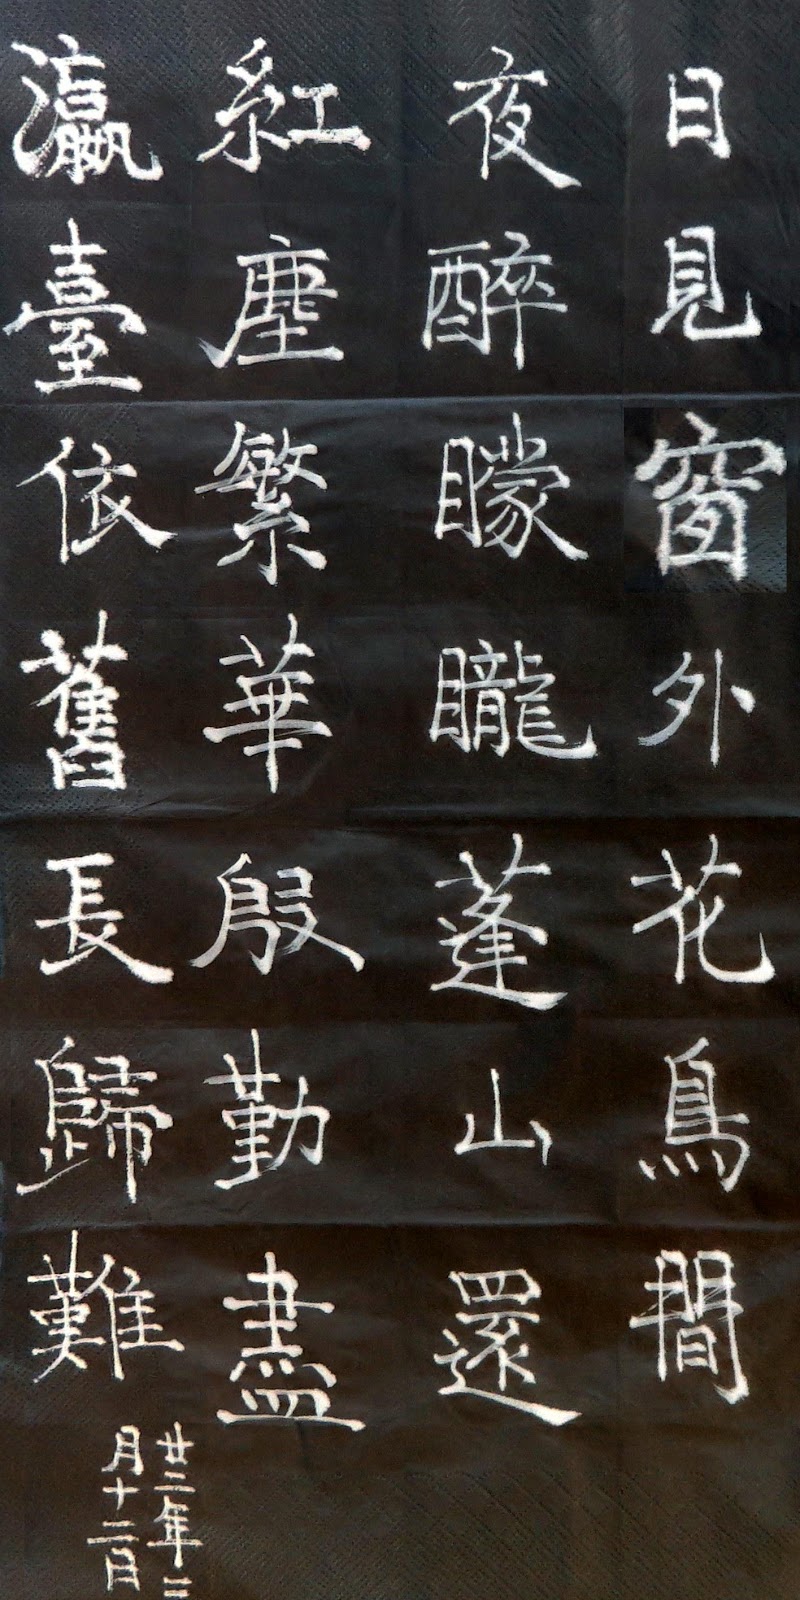 日見窗外花鳥間
夜醉矇朧蓬山還
紅塵繁華殷勤盡
瀛臺依舊長歸難
廿二年二
月十二日